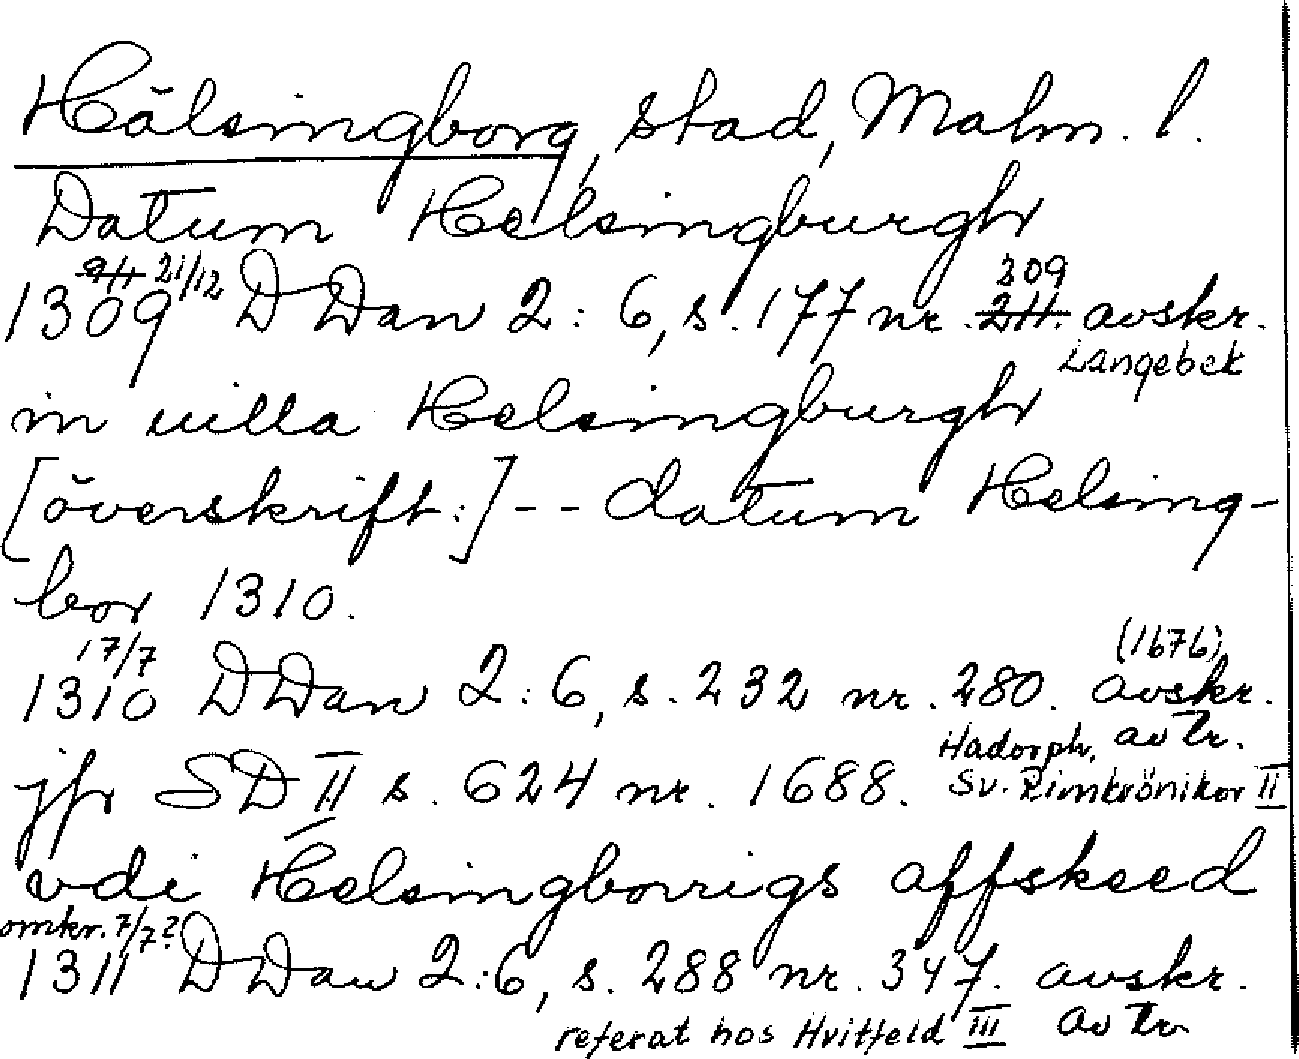 Hälsingborg, stad, Malm. l.
Datum Helsingburgh
21/12
1309 DDan 2:6, s. 177 nr. 309 avskr.
Langebek
in uilla Helsingburgh
[överskrift:] -- datum Helsing-
bor 1310.
17/7 (1676)
1310 DDan 2:6, s. 232 nr. 280. avskr.
Hadorph, av tr.
jfr SD II s. 624 nr. 1688. Sv. Rimkrönikor II
vdi Helsingborrigs affskeed
omkr. 7/7?
1311 DDan 2:6, s. 288 nr. 347. avskr.
referat hos Hvitfeld III av tr